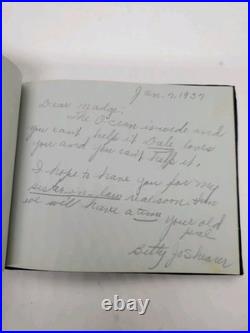 Jan. 7, 1937
Dear Madge;
The Ocean is wide and
you can't help it Dale loves
you and you can't help it.
I hope to have you for my
sister-in-law real soon then
we will have a time
your old
pal
Betty Jo Shearer